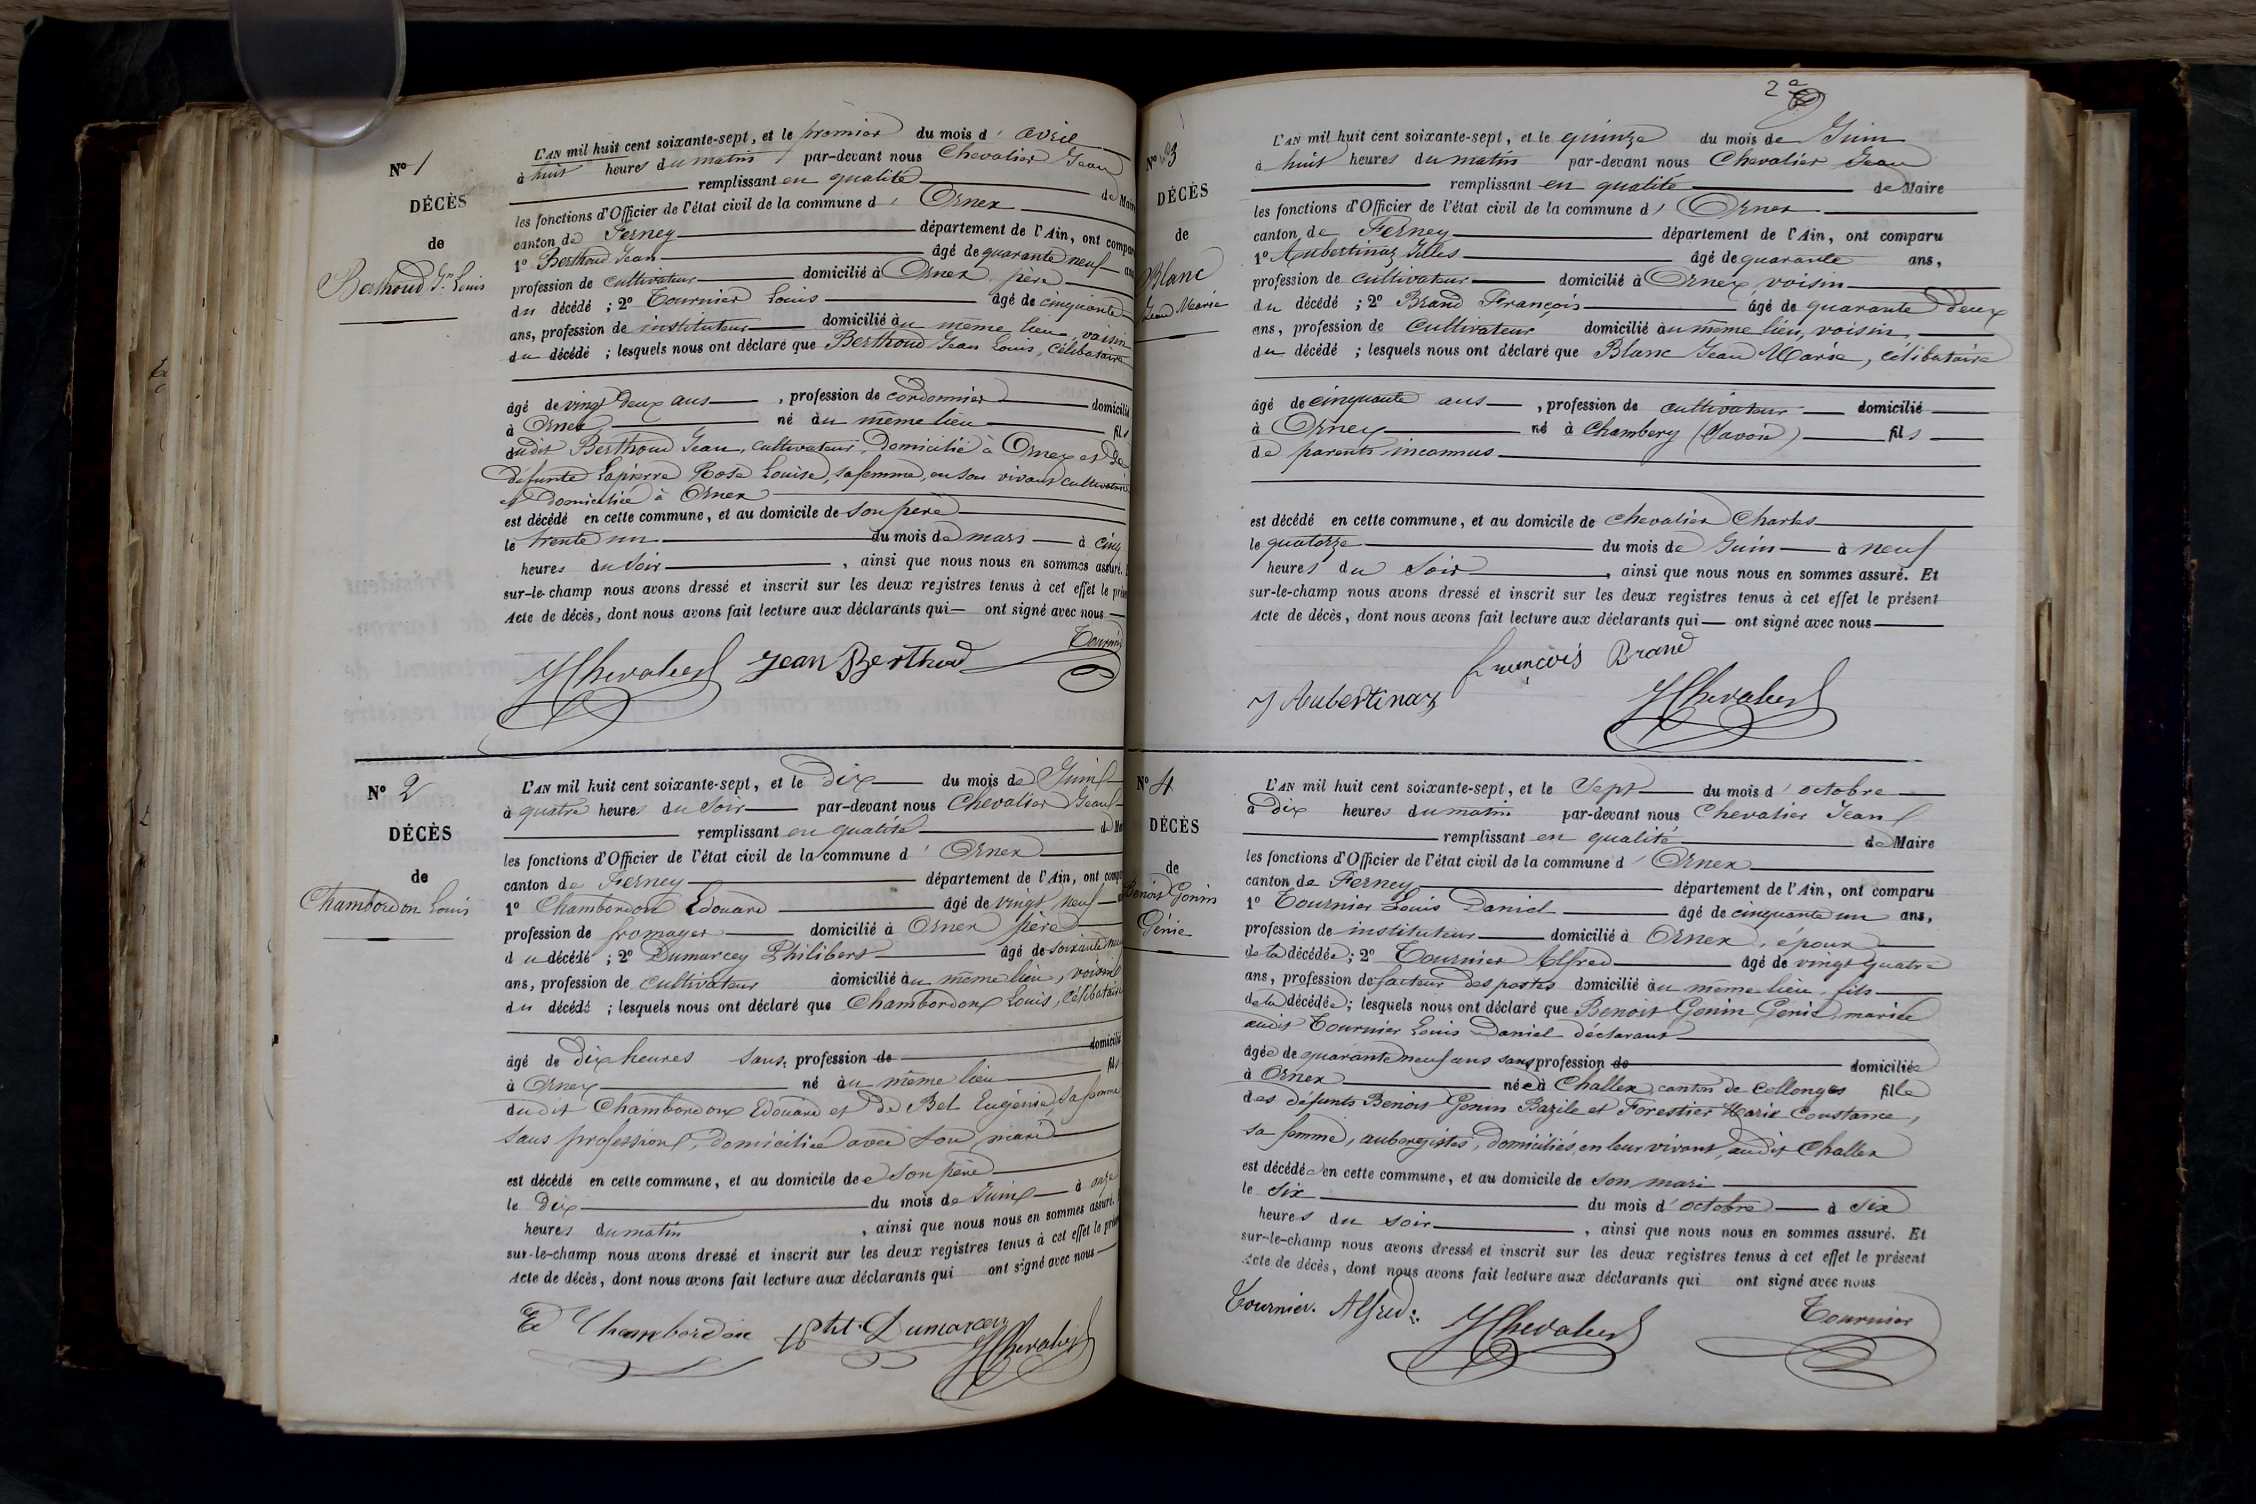 N° 1
DÉCÈS
de
Berthoud Jn Louis
L'AN mil huit cent soixante-sept, et le premier du mois d' avril
à huit heures du matin par-devant nous Chevalier Jean
remplissant en qualité de Maire
les fonctions d'Officier de l'état civil de la commune d' Ornex
canton de Ferney département de l'Ain, ont comparu
1° Berthoud Jean âgé de quarante neuf ans
profession de cultivateur domicilié à Ornex père
du décédé ; 2° Tournier Louis âgé de cinquante
ans, profession de instituteur domicilié au même lieu, voisin
du décédé ; lesquels nous ont déclaré que Berthoud Jean Louis, célibataire
âgé de vingt deux ans , profession de cordonnier domicilié
à Ornex né au même lieu fils
dudit Berthoud Jean, cultivateur, domicilié à Ornex et de
défunte Lapierre Rose Louise, sa femme, en son vivant cultivatrice
et domiciliée à Ornex
est décédé en cette commune, et au domicile de son père
le trente un du mois de mars à cinq
heures du soir , ainsi que nous nous en sommes assuré.
sur-le-champ nous avons dressé et inscrit sur les deux registres tenus à cet effet le présent
Acte de décès, dont nous avons fait lecture aux déclarants qui ont signé avec nous
Tournier
JChevalier Jean Berthoud
N° 2
DÉCÈS
de
Chambordon Louis
L'AN mil huit cent soixante-sept, et le dix du mois de Juin
à quatre heures du soir par-devant nous Chevalier Jean
remplissant en qualité de Maire
les fonctions d'Officier de l'état civil de la commune d' Ornex
canton de Ferney département de l'Ain, ont comparu
1° Chambordon Edouard âgé de vingt neuf
profession de fromager domicilié à Ornex père
du décédé ; 2° Dumarcey Philibert âgé de soixante neuf
ans, profession de cultivateur domicilié au même lieu, voisin
du décédé ; lesquels nous ont déclaré que Chambordon Louis, célibataire
âgé de dix heures sans profession de domicilié
à Ornex né au même lieu fils
dudit Chambordon Edouard et de Bel Eugénie, sa femme
sans profession, domiciliée avec son mari
est décédé en cette commune, et au domicile de son père
le dix du mois de Juin à onze
heures du matin , ainsi que nous nous en sommes assuré.
sur-le-champ nous avons dressé et inscrit sur les deux registres tenus à cet effet le présent
Acte de décès, dont nous avons fait lecture aux déclarants qui ont signé avec nous
Ed Chambordon Phit. Dumarcey JChevalier
2
N° 3
DÉCÈS
de
Blanc
Jean Marie
L'AN mil huit cent soixante-sept, et le quinze du mois de Juin
à huit heures du matin par-devant nous Chevalier Jean
remplissant en qualité de Maire
les fonctions d'Officier de l'état civil de la commune d' Ornex
canton de Ferney département de l'Ain, ont comparu
1° Aubertinaz Jules âgé de quarante ans,
profession de cultivateur domicilié à Ornex, voisin
du décédé ; 2° Brand François âgé de quarante deux
ans, profession de cultivateur domicilié au même lieu, voisin
du décédé ; lesquels nous ont déclaré que Blanc Jean Marie, célibataire
âgé de cinquante ans , profession de cultivateur domicilié
à Ornex né à Chambery (Savoie) fils
de parents inconnus
est décédé en cette commune, et au domicile de Chevalier Charles
le quatorze du mois de Juin à neuf
heures du soir , ainsi que nous nous en sommes assuré. Et
sur-le-champ nous avons dressé et inscrit sur les deux registres tenus à cet effet le présent
Acte de décès, dont nous avons fait lecture aux déclarants qui ont signé avec nous
françois Brand
J Aubertinaz JChevalier
N° 4
DÉCÈS
de
Benoit Gonin
Génie
L'AN mil huit cent soixante-sept, et le Sept du mois d' octobre
à dix heures du matin par-devant nous Chevalier Jean
remplissant en qualité de Maire
les fonctions d'Officier de l'état civil de la commune d' Ornex
canton de Ferney département de l'Ain, ont comparu
1° Tournier Louis Daniel âgé de cinquante un ans,
profession de instituteur domicilié à Ornex, époux
de la décédée ; 2° Tournier Alfred âgé de vingt quatre
ans, profession de facteur des postes domicilié au même lieu, fils
de la décédée ; lesquels nous ont déclaré que Benoit Gonin Génie, mariée
audit Tournier Louis Daniel déclarant
âgée de quarante neuf ans sans profession de domiciliée
à Ornex née à Challex canton de Collonges fille
des défunts Benoit Gonin Bazile et Forestier Marie Constance,
sa femme, aubergistes, domiciliés, en leur vivant, audit Challex
est décédée en cette commune, et au domicile de son mari
le six du mois d' octobre à six
heures du soir , ainsi que nous nous en sommes assuré. Et
sur-le-champ nous avons dressé et inscrit sur les deux registres tenus à cet effet le présent
Acte de décès, dont nous avons fait lecture aux déclarants qui ont signé avec nous
Tournier. Alfred. JChevalier Tournier